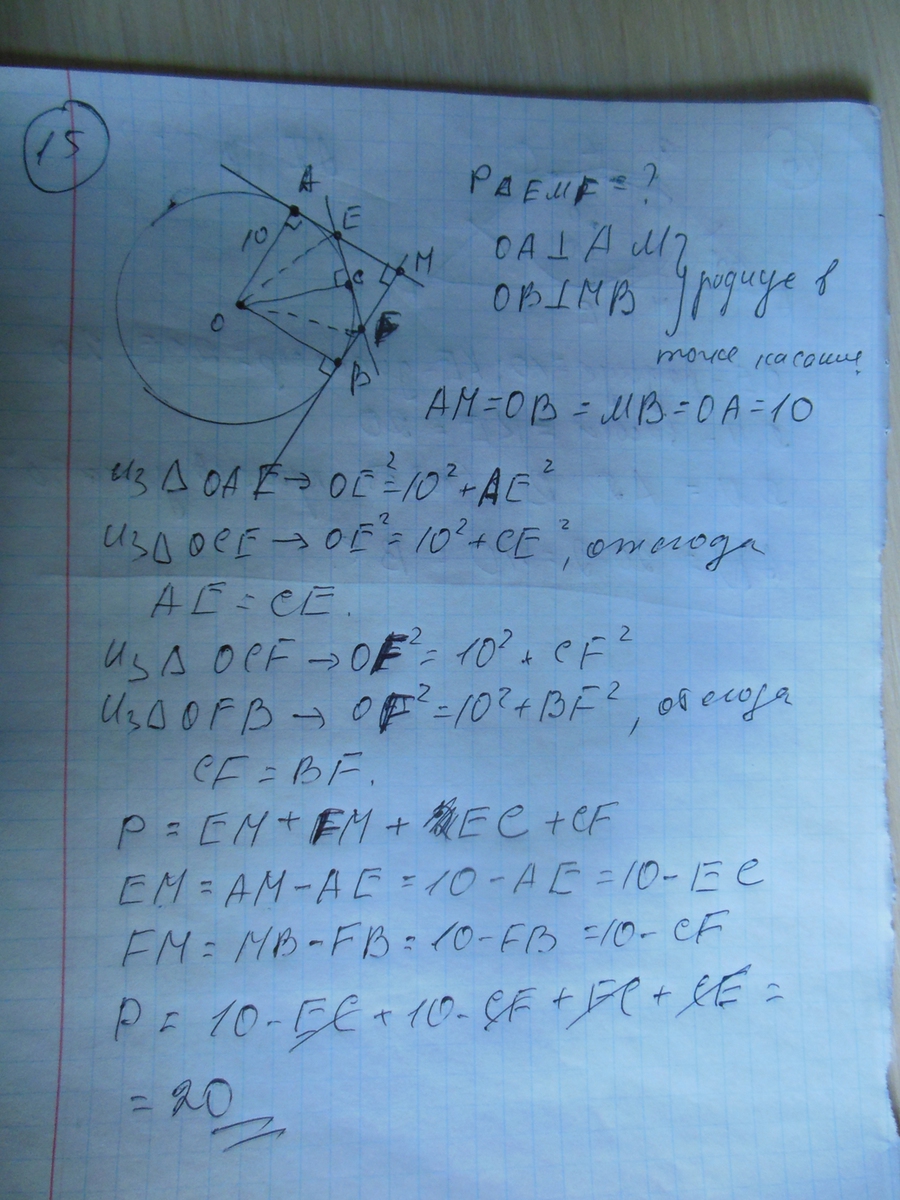 15
A
E
10
M
C
O
F
B
P△EMF = ?
OA⊥AM
OB⊥MB } радиус в
точке касания
AM=OB=MB=OA=10
Из △ OAE → OE²=10²+AE²
Из △ OCE → OE²=10²+CE², отсюда
AE = CE.
Из △ OCF → OF²=10²+CF²
Из △ OFB → OF²=10²+BF², отсюда
CF = BF.
P = EM + FM + EC + CF
EM = AM-AE = 10-AE = 10-EC
FM = MB-FB = 10-FB = 10-CF
P = 10-EC + 10-CF + EC + CF =
= 20